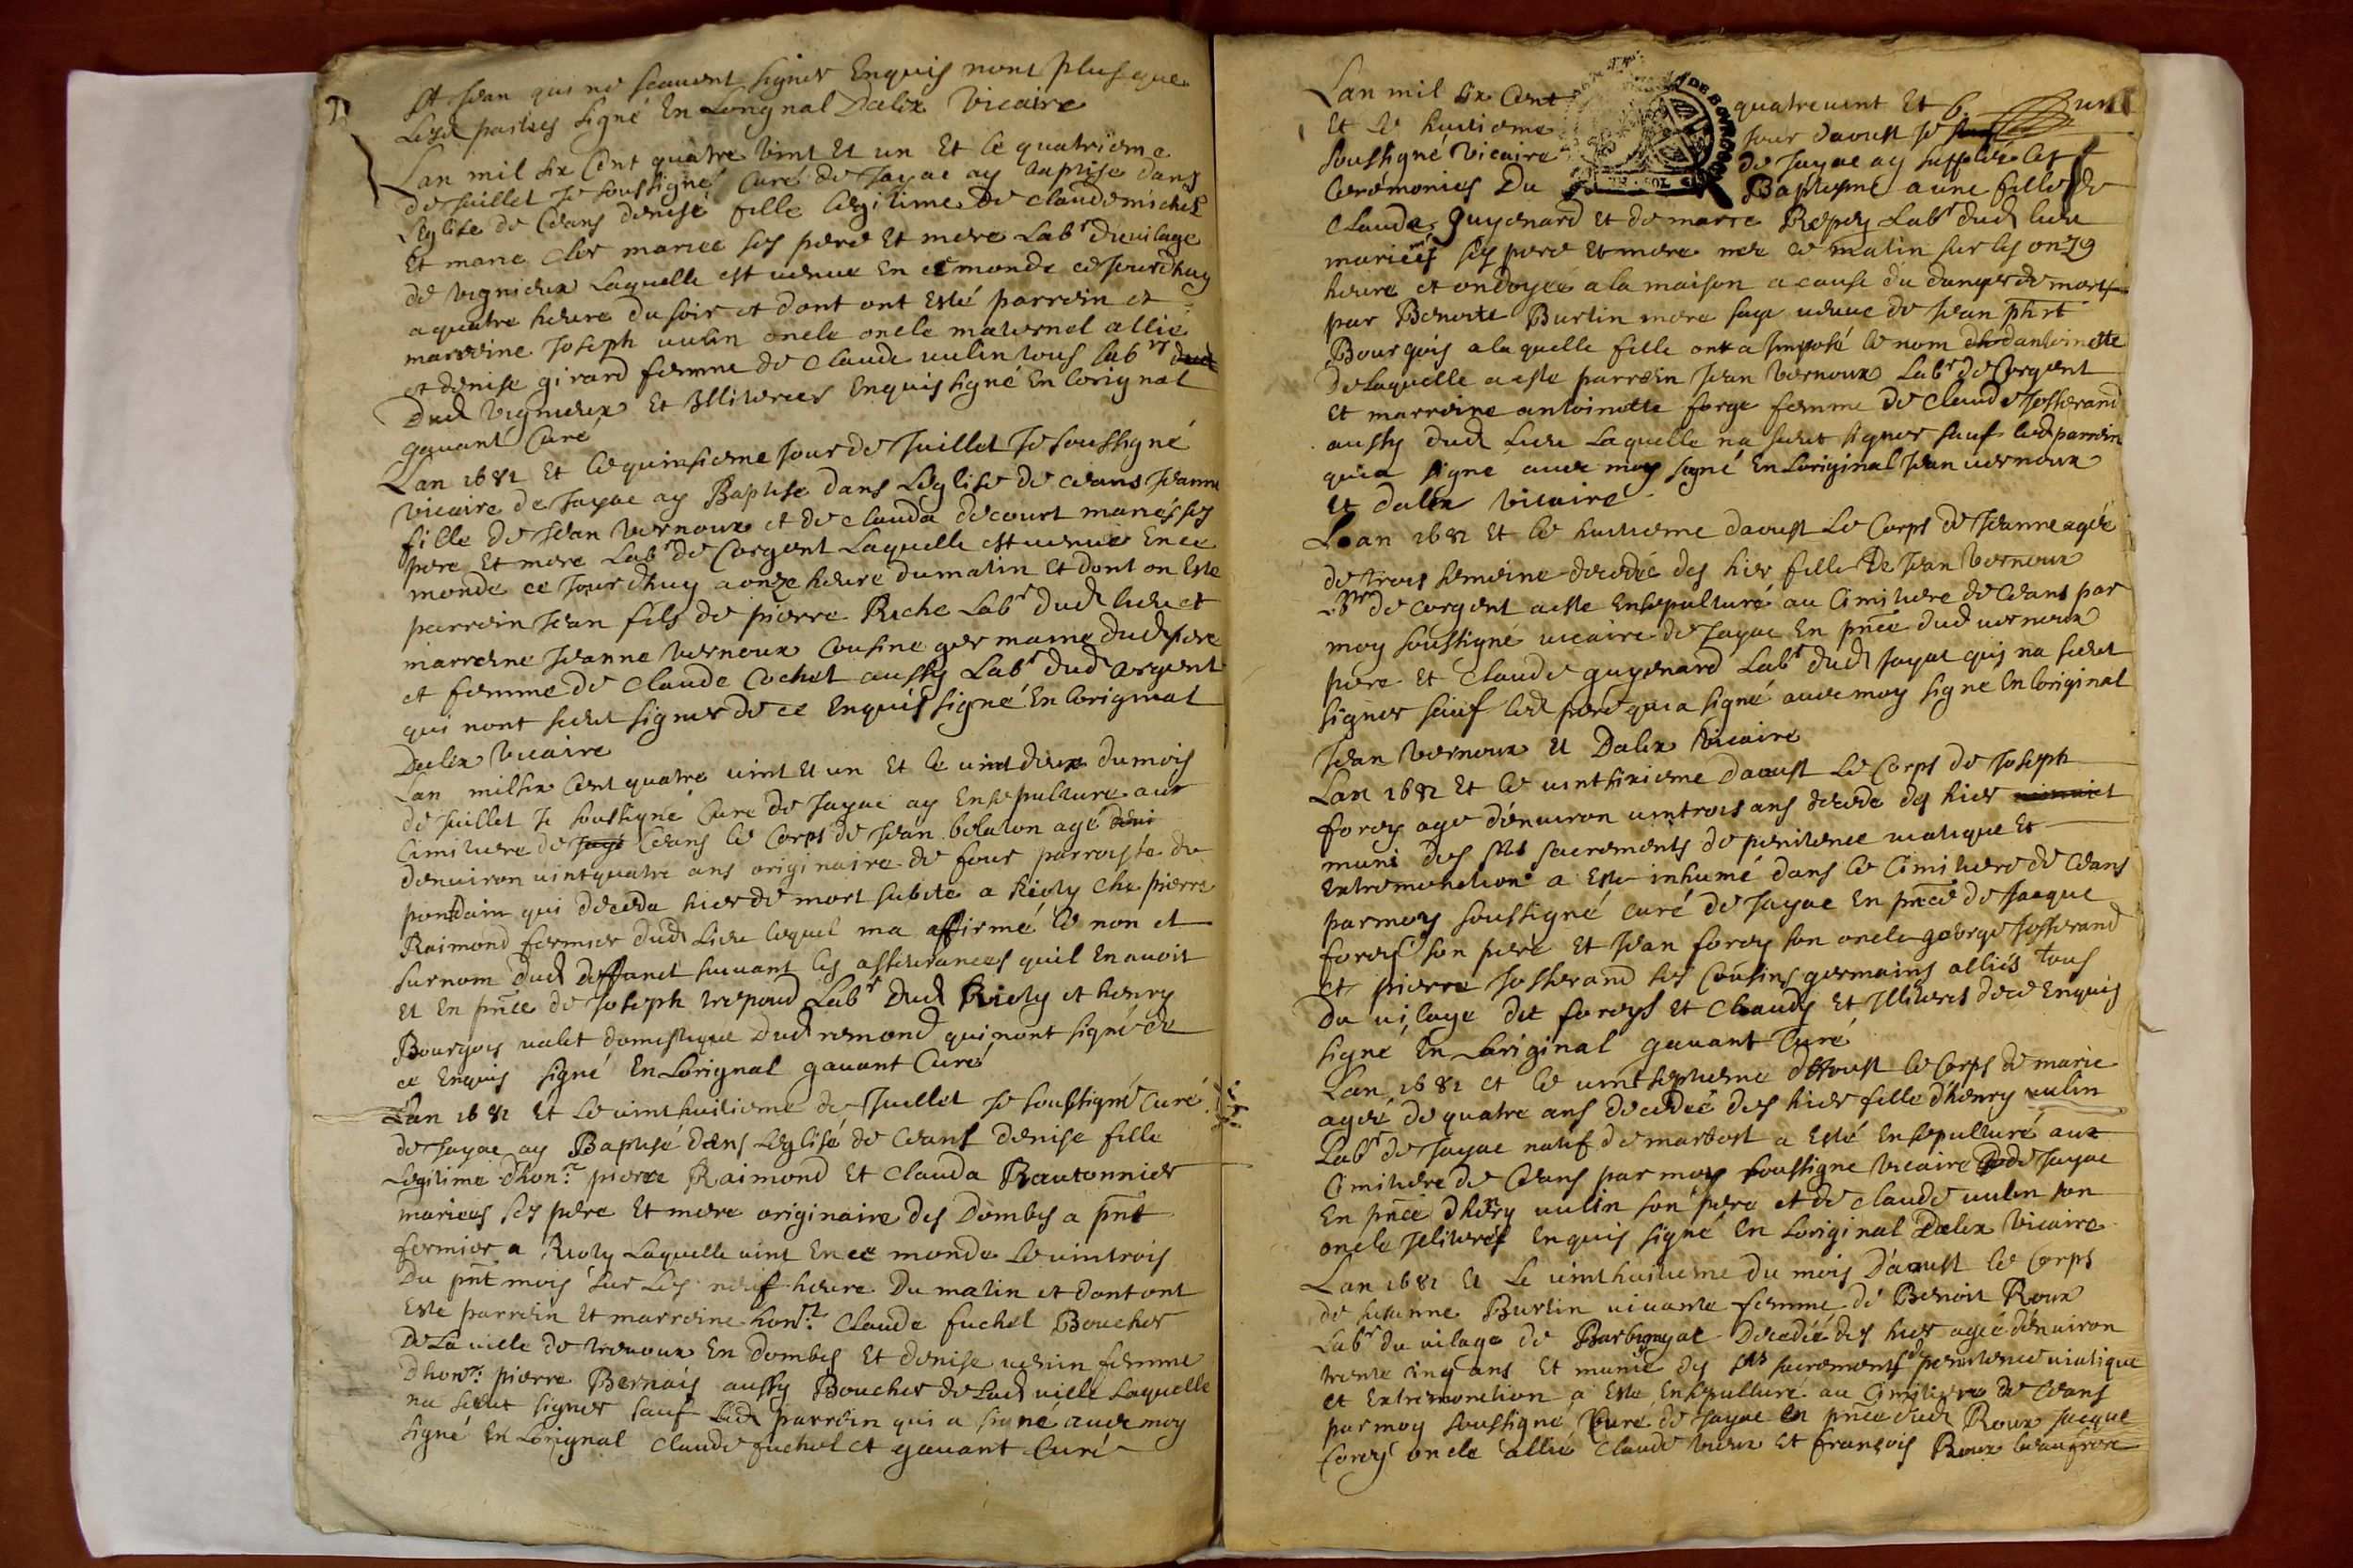 St Jean qui ne scavent signer Enquis nont plus que
Lesd parties signé En Lorignal Dalex Vicaire
Lan mil six Cent quatre vint Et un Et le quatrieme
de Juillet Je soussigné Curé de Jayac ay baptise dans
Leglise de Ceans denise fille legitime de claude michel
Et marie cler mariee ses pere Et mere Labr du vilage
de vignieux Laquelle est venue En ce monde ce jourdhuy
a quatre heure du soir et dont ont Esté parrein et
marreine Joseph vulin oncle oncle maternel allie
et denise girard femme de claude vulin tous labrs dud
Dud vignieux Et Illiterees Enquis signé En Lorignal
gavant Curé
Lan 1681 Et le quinsieme Jour de Juillet Je soussigné
vicaire de Jayac ay Baptise dans Leglise de ceans Jeanne
fille de Jean vernoux et de clauda decourt mariés ses
pere Et mere Labr de Corgent Laquelle est venue En ce
monde ce Jourdhuy a onze heure du matin Et dont on Este
parrein Jean fils de pierre Riche Labr dud lieu et
marreine Jeanne vernoux Cousine germaine dud pere
et femme de claude Cochet aussy Labr dud Corgent
qui nont sceut signer de ce Enquis signé En Lorignal
Dalex vicaire
Lan mil six Cent quatre vint Et un Et le vint deux du mois
de Juillet Je soussigné Cure de Jayac ay Ensepulture aux
Cimitiere de Ceans le Corps de Jean belaton agé
denviron vint quatre ans originaire de four parroisse du
pontdain qui deceda hier de mort subite a Rioly che pierre
Raimond fermier dud Lieu lequel ma affirmé le non et
surnom dud deffunct suivant les asseurances quil En avoit
Et En pnce de Joseph trepoud Labr Dud Rioly et henry
Bourgois valet domestique Dud remond qui nont signé de
ce Enquis signé En Lorignal gavant Curé
Lan 1681 Et Le vint huitieme de Juillet Je soussigné Curé
de Jayac ay Baptisé dans Leglise de Ceans denise fille
Legitime dhon.e pierre Raimond Et Clauda Rautonnier
mariees ses pere Et mere originaire des Dombes a pnt
fermier a Rioly Laquelle vint En ce monde Le vintrois
Du pnt mois sur Les neuf heure Du matin et dont ont
Este parrein Et marreine honr.e Claude fuchet Boucher
De La ville de trevoux En dombes Et denise verin femme
Dhonr.e pierre Bernais aussy Boucher de Lad ville Laquelle
na sceut signer sauf Led parrein qui a signé avec moy
signé En Lorignal Claude fuchet et gavant Curé
Lan mil six Cent quatrevint Et
Et le huitieme Jour daoust Je
soussigné vicaire de Jayac ay suppleé les
Ceremonies Du Baptesme a une fille de
Claude guyenard Et de marie Repey Labr dud lieu
mariees ses pere Et mere nee ce matin sur les onze
heure et ondoyée a la maison a cause du danger de mort
par Benoite Burtin mere sage veuve de Jean phrt
Bourgois a laquelle fille on a Imposé le nom dantoinette
de laquelle a este parrein Jean vernoux Labr de Corgent
Et marreine antoinette forge femme de Claude Josserand
aussy dud Lieu Laquelle na sceut signer sauf led parrein
qui a signe avec moy signé En Loriginal Jean vernoux
Et dalex vicaire
Lan 1681 Et le huitieme daoust Le Corps de Jeanne agée
de trois semeine decedée des hier fille De Jean vernoux
Labr de corgent a este Ensepulturé au Cimitiere de Ceans par
moy soussigné vicaire de Jayac En pnce dud vernoux
pere Et Claude guyenard Labr dud Jayac qui na sceut
signer sauf led pere qui a signé avec moy signé En Loriginal
Jean vernoux Et Dalex vicaire
Lan 1681 Et le vint sixieme daoust Le Corps de Joseph
forey age denviron vintrois ans decede des hier
muni des sts sacrements de penitence viatique Et
Extremonction a Este inhumé dans le Cimitiere de Ceans
par moy soussigné curé de Jayac En pnce de Jacque
forey son pere Et Jean forey son oncle george Josserand
et pierre Josserand ses Cousins germains alliés tous
Du vilage de foreys Et Claudy Et Illiteres de ce Enquis
signé En Loriginal gavant Curé
Lan 1681 et le vint septieme daoust le Corps de marie
ageé de quatre ans decedeé des hier fille dhenry vulin
Labr de Jayac natif de marbost a Esté Ensepulturé aux
Cimitiere de Ceans par moy soussigne vicaire de Jayac
En pnce dhenry vulin son pere et de claude vulin son
oncle Illiteres Enquis signé En Loriginal Dalex vicaire
Lan 1681 Et Le vint huitieme du mois Daoust le Corps
de susanne Burtin vivante femme de Benoit Roux
Labr du vilage de Decedée des hier agée denviron
trente cinq ans Et munie des sts sacrements de penitence viatique
et Extremonction a Este Ensepulturé au Cimitiere de Ceans
par moy soussigné Curé de Jayac En pnce dud Roux Jacque
forey oncle allié Claude vieux Et françois Roux beaufrere